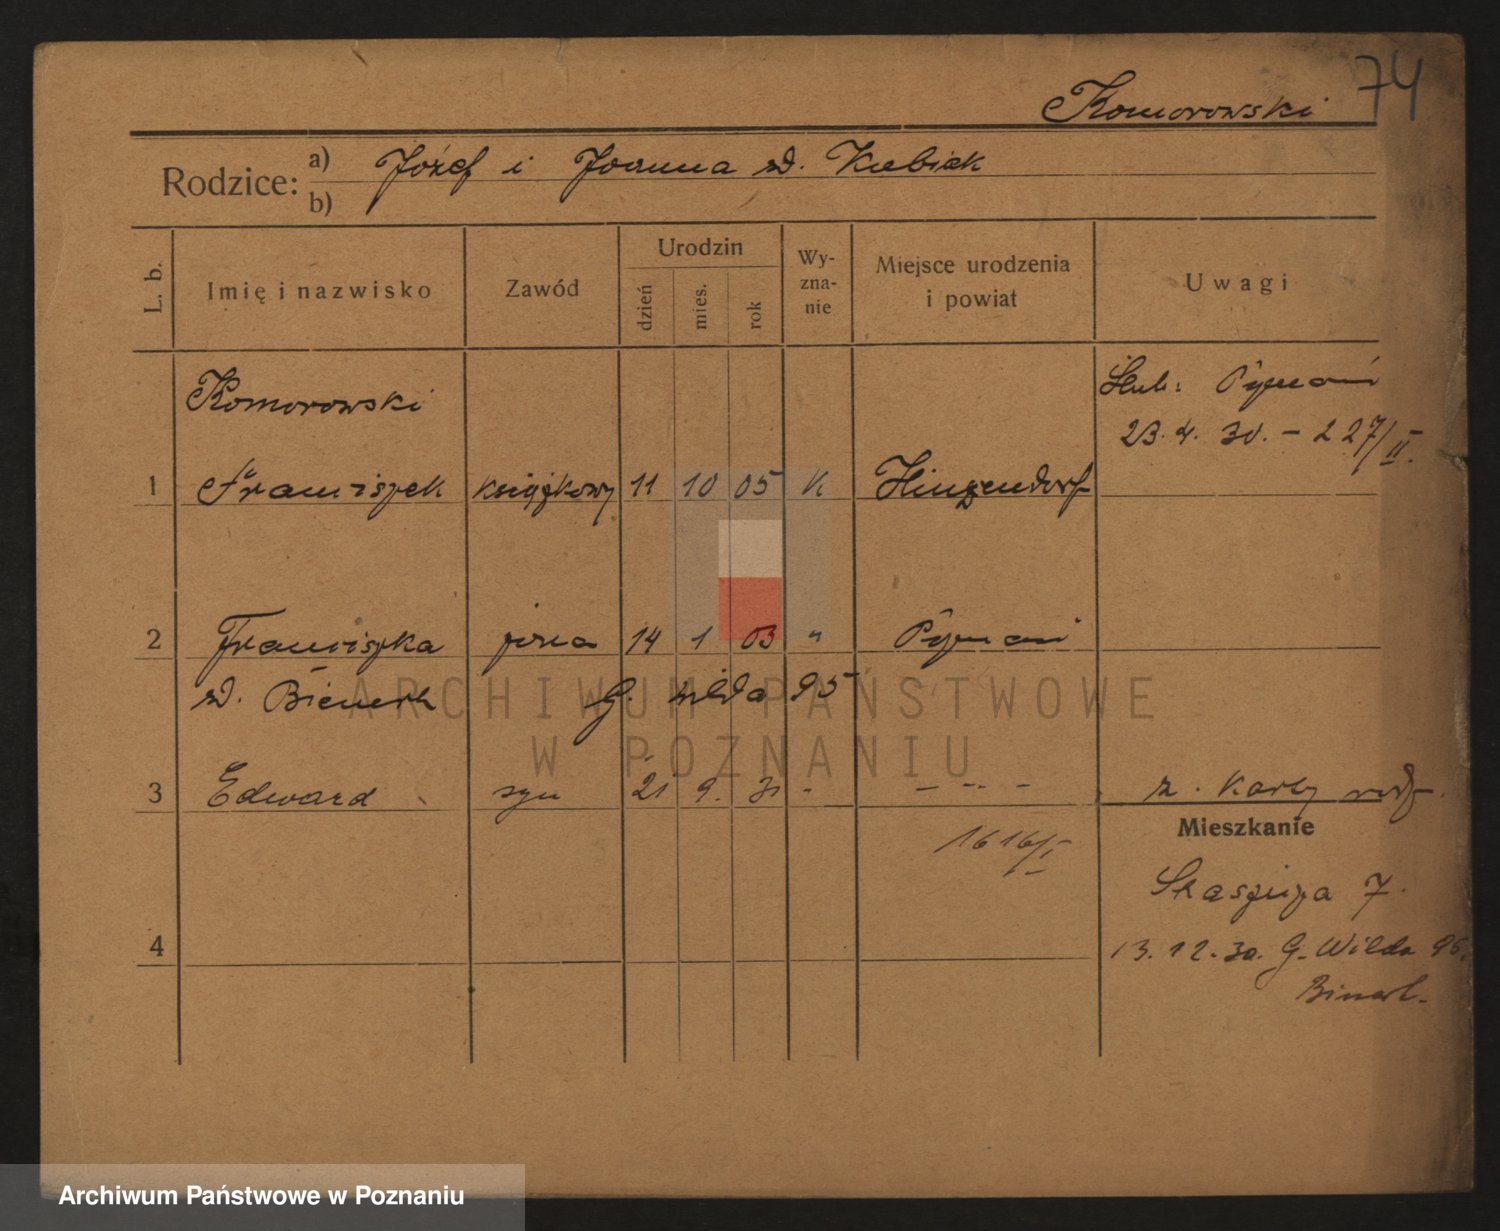 74
Komorowski
Rodzice: a) Józef i Joanna zd. Kubiak
b)
L. b.
Imię i nazwisko
Zawód
Urodzin
dzień
mies.
rok
Wy-
zna-
nie
Miejsce urodzenia
i powiat
Uwagi
Komorowski
Ślub: Poznań
23. 4. 30. – 227/II.
1 Franciszek książkowy 11 10 05 K Hinzendorf
2 Franciszka żona 14 1 03 " Poznań
zd. Bienert G. Wilda 95
3 Edward syn 21 9. 31 - - - - z. karty rodz.
1616/I
Mieszkanie
Staszica 7.
4
13. 12. 30. G. Wilda 95.
ARCHIWUM PAŃSTWOWE
W POZNANIU
Archiwum Państwowe w Poznaniu